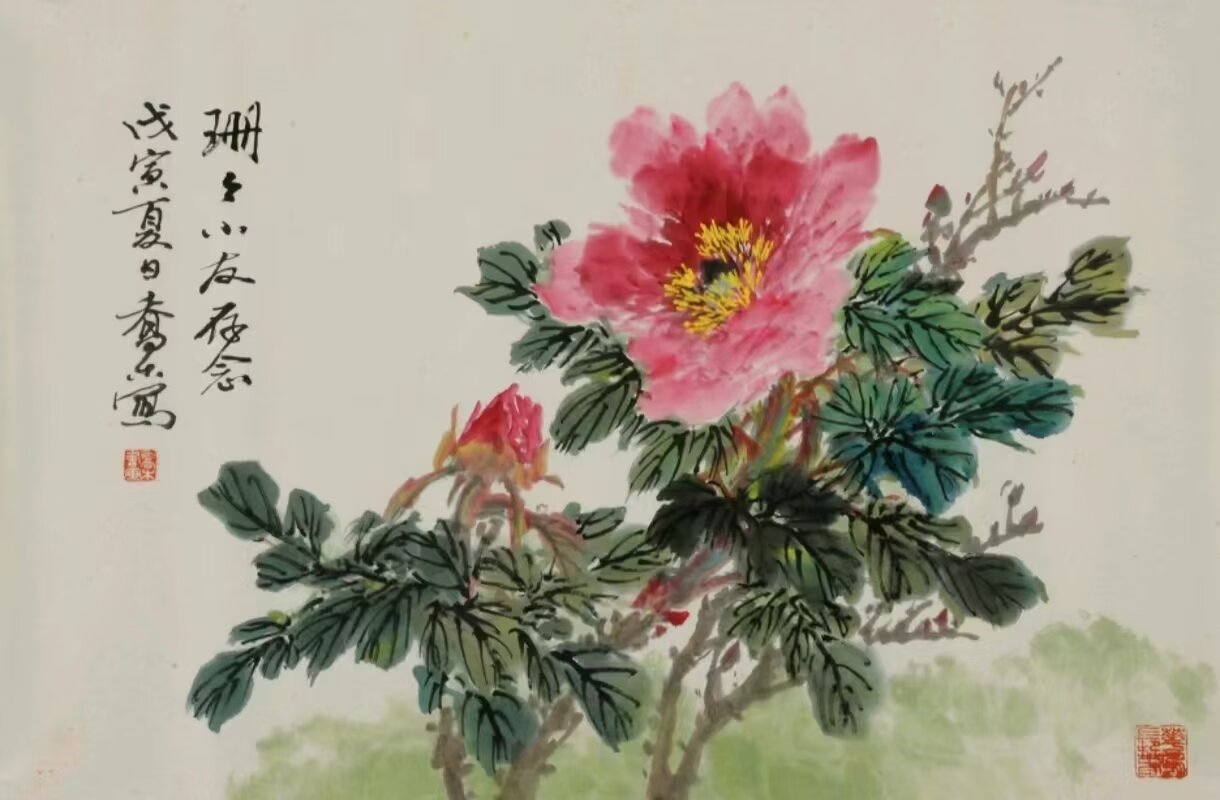 珊々小友存念
戊寅夏日喬木寫